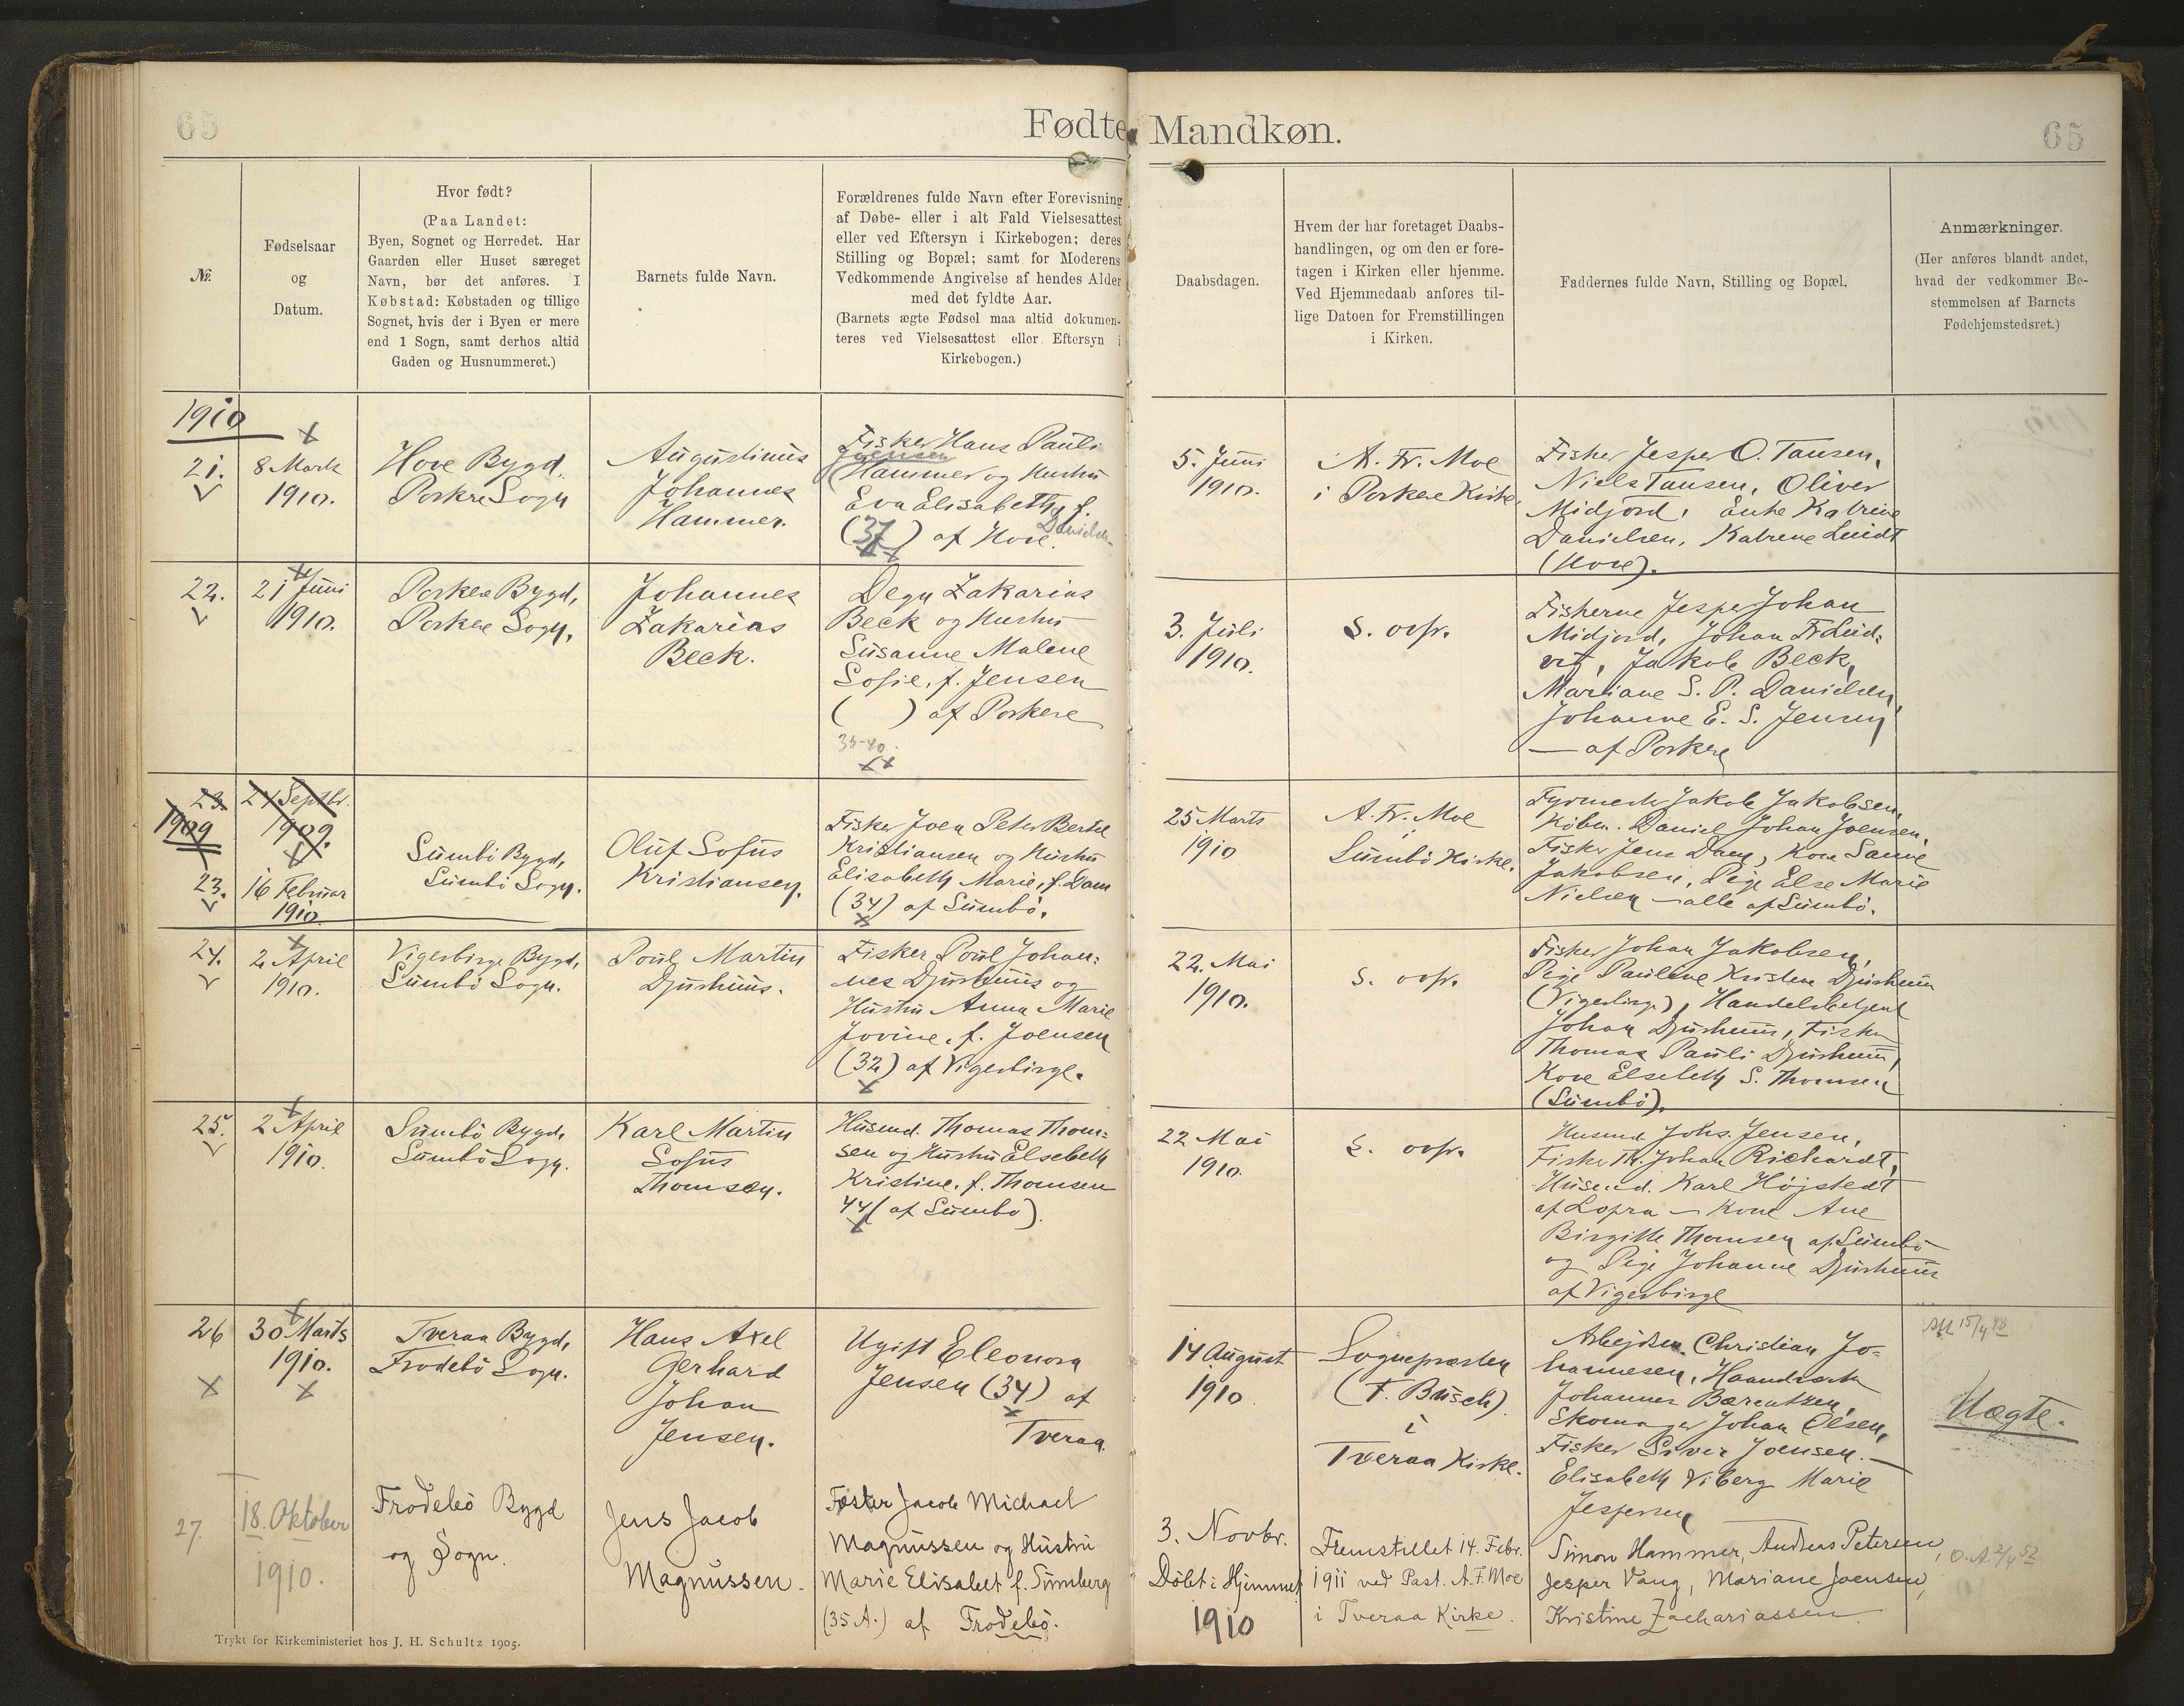 65
Fødte Mandkøn.
65
№
Fødselsaar
og
Datum.
Hvor født?
(Paa Landet:
Byen, Sognet og Herredet. Har
Gaarden eller Huset særeget
Navn, bør det anføres. I
Købstad: Købstaden og tillige
Sognet, hvis der i Byen er mere
end 1 Sogn, samt derhos altid
Gaden og Husnummeret.)
Barnets fulde Navn.
Forældrenes fulde Navn efter Forevisning
af Døbe- eller i alt Fald Vielsesattest
eller ved Eftersyn i Kirkebogen; deres
Stilling og Bopæl; samt for Moderens
Vedkommende Angivelse af hendes Alder
med det fyldte Aar.
(Barnets ægte Fødsel maa altid dokumen-
teres ved Vielsesattest eller Eftersyn i
Kirkebogen.)
Daabsdagen.
Hvem der har foretaget Daabs-
handlingen, og om den er fore-
tagen i Kirken eller hjemme.
Ved Hjemmedaab anføres til-
lige Datoen for Fremstillingen
i Kirken.
Faddernes fulde Navn, Stilling og Bopæl.
Anmærkninger.
(Her anføres blandt andet,
hvad der vedkommer Be-
stemmelsen af Barnets
Fødehjemstedsret.)
1910
21.
8 Marts
1910.
Hove Bygd.
Porkere Sogn
Augustinus
Johannes
Hammer.
Fisker Hans Pauli
Joensen
Hammer og Hustru
Eva Elisabeth, f.
Danielsen
(37) af Hove.
5. Juni
1910.
A. Fr. Moe
i Porkere Kirke.
Fisker Jesper O. Tausen,
Niels Tausen, Oliver
Midjord, Enke Katrine
Danielsen, Katrine
(Hove).
22.
21 Juni
1910.
Porkere Bygd,
Porkere Sogn.
Johannes
Zakarias
Beck.
Degn Zakarias
Beck og Hustru
Susanne Malene
Sofie, f. Jensen
( ) af Porkere
35-40.
3. Juli
1910.
S. ovfr.
Fiskerne Jesper Johan
Midjord, Johan Fr Lud=
vig, Jakob Beck,
Mariane S. P. Danielsen,
Johanne E. S. Jensen
— af Porkere
23.
24 Septbr.
1909
1909.
23.
16 Februar
1910
Sumbö Bygd,
Sumbö Sogn.
Oluf Sofus
Kristiansen.
Fisker Joen Peter Bertel
Kristiansen og Hustru
Elisabeth Marie, f. Dam
(34) af Sumbö.
25 Marts
1910
A. Fr. Moe
i
Sumbö Kirke.
Fyrmester Jakob Jakobsen,
Købm. Daniel Johan Joensen,
Fisker Jens Dam, Kone Sanne
Jakobsen, Pige Else Marie
Nielsen — alle af Sumbö.
24.
2 April
1910.
Vigerbirge Bygd,
Sumbö Sogn.
Poul Martin
Djurhuus.
Fisker Poul Johan=
nes Djurhuus og
Hustru Anna Marie
Jovine, f. Joensen
(32) af Vigerbirge.
22. Mai
1910.
S. ovfr.
Fisker Johan Jakobsen,
Pige Pauline Kristine Djurhuus
(Vigerbirge), Handelsbetjent
Johan Djurhuus, Fisker
Thomas Pauli Djurhuus,
Kone Elsebeth S. Thomsen
(Sumbö).
25.
2 April
1910.
Sumbö Bygd,
Sumbö Sogn.
Karl Martin
Sofus
Thomsen.
Husmd. Thomas Thom=
sen og Hustru Elsebeth
Kristine, f. Thomsen
44 (af Sumbö).
22 Mai
1910.
S. ovfr.
Husmd. Johs. Jensen,
Fisker Th. Johan Richardt,
Husmd. Karl Højstedt
af Lopra — Kone Ane
Birgitte Thomsen af Sumbö
og Pige Johanne Djurhuus
af Vigerbirge
26
30 Marts
1910.
Tveraa Bygd,
Frodebö Sogn.
Hans Axel
Gerhard
Johan
Jensen.
Ugift Eleonora
Jensen (34) af
Tveraa.
14 August
1910.
Sognepræsten
(F. Busch)
i
Tveraa Kirke.
Arbejdsm. Christian Jo=
hannesen, Haandværk
Johannes Bærentzen,
Skomager Johan Olsen,
Fisker Siver Joensen. —
Elisabeth Viberg Marie
Jespersen
15/4 48
Uægte.
27.
18. Oktober
1910.
Frodebö Bygd
og Sogn.
Jens Jacob
Magnussen.
Fæster Jacob Michael
Magnussen og Hustru
Marie Elisabet f. Sumberg
(35 A.) af Frodebö.
3. Novbr.
Döbt i Hjemmet
1910
Fremstillet 14. Febr.
1911 ved Past. A. F. Moe
i Tveraa Kirke.
Simon Hammer, Andreas Petersen,
Jesper Vang, Mariane Joensen,
Kristine Zachariassen.
O. A 2/4 52
Trykt for Kirkeministeriet hos J. H. Schultz 1905.